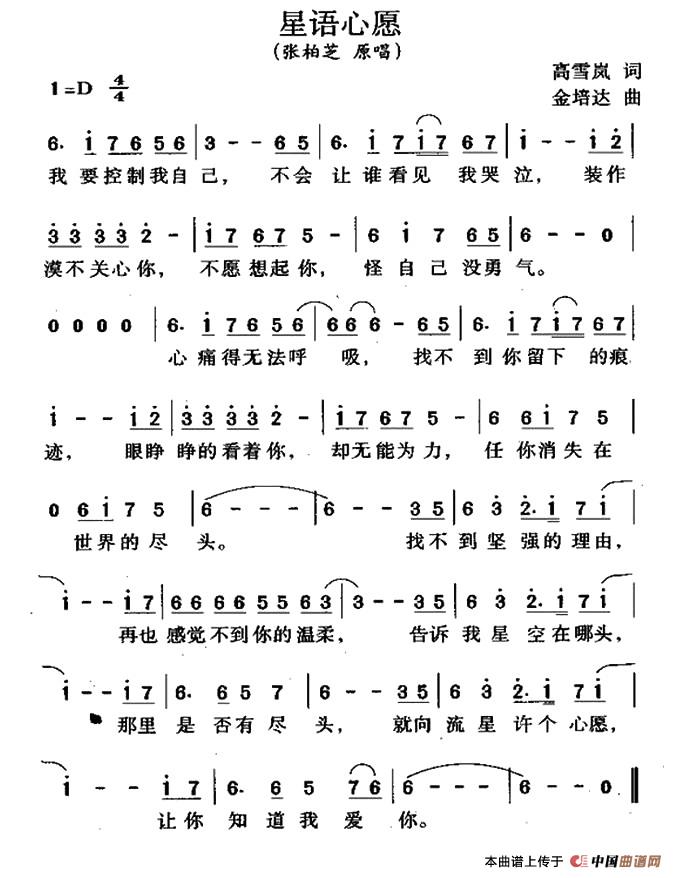 星语心愿
(张柏芝 原唱)
1=D 4/4
高雪岚 词
金培达 曲
6. i 7 6 5 6 | 3 - - 6 5 | 6. i 7 i 7 6 7 | i - - i 2 |
我 要控制我自己, 不会 让谁看见 我哭泣, 装作
3 3 3 3 2 - | i 7 6 7 5 - | 6 i 7 6 5 | 6 - - 0 |
漠不关心你, 不愿想起你, 怪自己没勇气。
0 0 0 0 | 6. i 7 6 5 6 | 6 6 6 - 6 5 | 6. i 7 i 7 6 7 |
心痛得无法呼 吸, 找不 到你留下 的痕
i - - i 2 | 3 3 3 3 2 - | i 7 6 7 5 - | 6 6 i 7 5 |
迹, 眼睁 睁的看着你, 却无能为力, 任你消失在
0 6 i 7 5 | 6 - - - | 6 - - 3 5 | 6 3 2. i 7 i |
世界的尽 头。 找不到坚 强的理由,
i - - i 7 | 6 6 6 6 5 5 6 3 | 3 - - 3 5 | 6 3 2. i 7 i |
再也 感觉不到你的温柔, 告诉 我星 空在哪头,
i - - i 7 | 6. 6 5 7 | 6 - - 3 5 | 6 3 2. i 7 i |
那里 是 否有尽 头, 就向 流星 许个 心愿,
i - - i 7 | 6. 6 5 7 6 | 6 - - - | 6 - - 0 ‖
让你 知 道我 爱 你。
本曲谱上传于 中国曲谱网